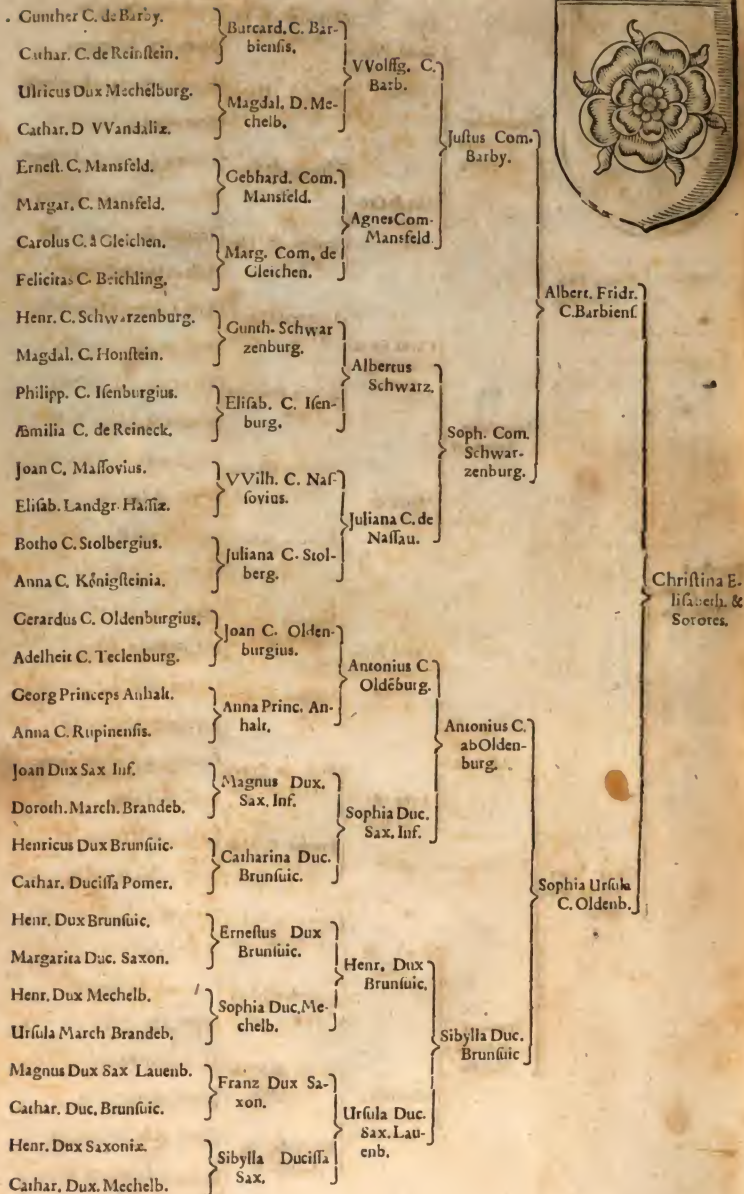 Gunther C. de Barby.
Cathar. C. de Reinstein.
Ulricus Dux Mechelburg.
Cathar. D VVandaliæ.
Ernest. C. Mansfeld.
Margar. C. Mansfeld.
Carolus C. à Gleichen.
Felicitas C. Beichling.
Henr. C. Schwarzenburg.
Magdal. C. Honstein.
Philipp. C. Isenburgius.
Æmilia C. de Reineck.
Joan C. Massovius.
Elisab. Landgr. Hassiæ.
Botho C. Stolbergius.
Anna C. Königsteinia.
Gerardus C. Oldenburgius.
Adelheit C. Teclenburg.
Georg Princeps Anhalt.
Anna C. Rupinensis.
Joan Dux Sax Inf.
Doroth. March. Brandeb.
Henricus Dux Brunsuic.
Cathar. Ducissa Pomer.
Henr. Dux Brunsuic.
Margarita Duc. Saxon.
Henr. Dux Mechelb.
Ursula March Brandeb.
Magnus Dux Sax Lauenb.
Cathar. Duc. Brunsuic.
Henr. Dux Saxoniæ.
Cathar. Dux. Mechelb.
Burcard. C. Bar-
biensis.
Magdal. D. Me-
chelb.
Gebhard. Com.
Mansfeld.
Marg. Com. de
Gleichen.
Gunth. Schwar
zenburg.
Elisab. C. Isen-
burg.
VVilh. C. Nas-
sovius.
Juliana C. Stol-
berg.
Joan C. Olden-
burgius.
Anna Princ. An-
halt.
Magnus Dux.
Sax. Inf.
Catharina Duc.
Brunsuic.
Ernestus Dux
Brunsuic.
Sophia Duc. Me-
chelb.
Franz Dux Sa-
xon.
Sibylla Ducissa
Sax.
VVolffg. C.
Barb.
Agnes Com.
Mansfeld.
Albertus
Schwarz.
Juliana C. de
Nassau.
Antonius C
Oldēburg.
Sophia Duc.
Sax. Inf.
Henr. Dux
Brunsuic.
Ursula Duc.
Sax. Lau-
enb.
Justus Com.
Barby.
Soph. Com.
Schwar-
zenburg.
Antonius C.
ab Olden-
burg.
Sibylla Duc.
Brunsuic
Albert. Fridr.
C. Barbiens.
Sophia Ursula
C. Oldenb.
Christina E-
lisabeth. &
Sorores.